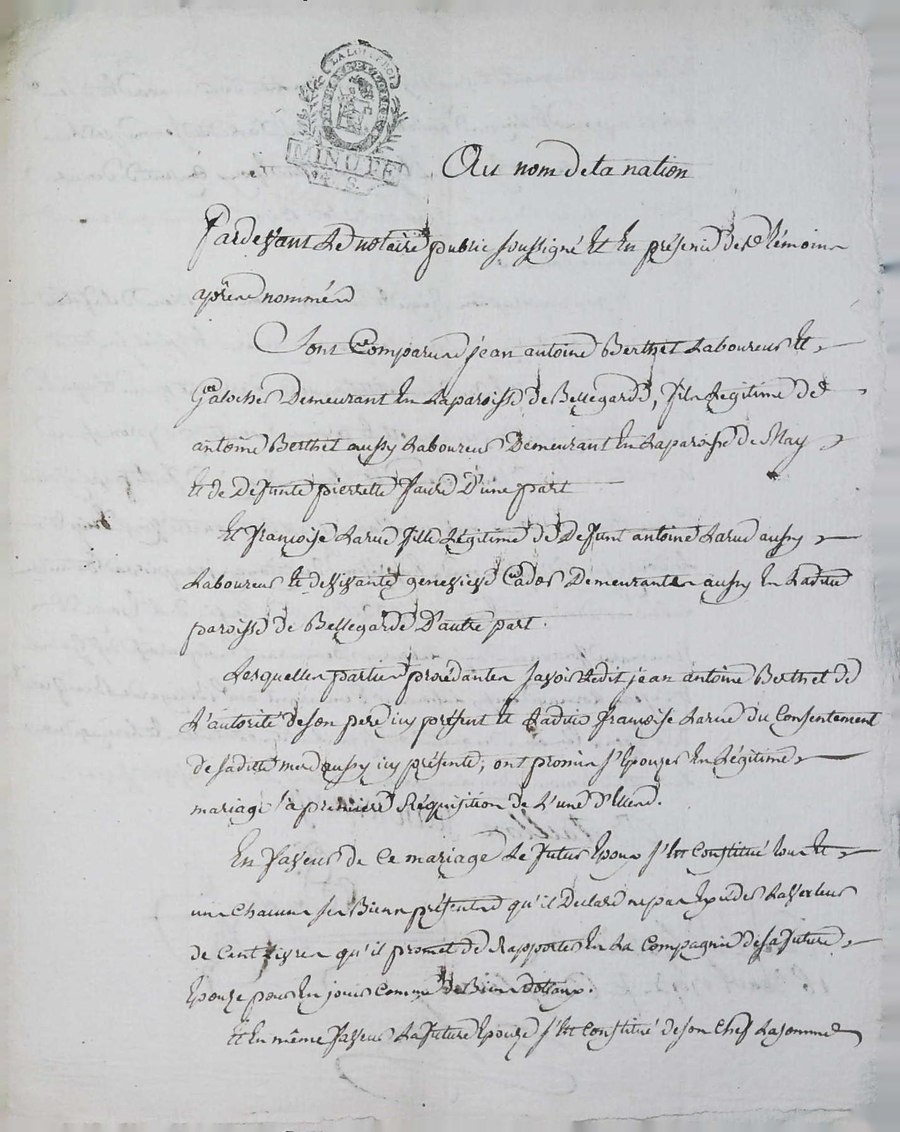 LA LOI
MINUTE
4 S.
Au nom de la nation
Pardevant Le notaire public soussigné Et En présence des témoins
après nommés
Sont Comparus jean antoine Berthet Laboureur Et
Galocher Demeurant En La paroisse de Bellegarde, fils Légitime de
antoine Berthet aussy Laboureur Demeurant En La paroisse de May
Et de Defunte pierrette faure D'une part
Et françoise Larue fille Légitime de Defunt antoine Larue aussy
Laboureur Et de vivante genevieve Demeurante aussy En Ladite
paroisse de Bellegarde D'autre part.
Lesquelles parties procédantes savoir Ledit jean antoine Berthet de
L'autorité de son pere icy présent Et Laditte françoise Larue du Consentement
de saditte mere aussy icy présente; ont promis s'Epouzer En Légitime
mariage à premiere Réquisition de L'une D'Elles.
En faveur de Ce mariage Le futur Epoux s'Est Constitué tous Et
un chacuns ses Biens présents qu'il Declare ne pas Exceder La valeur
de Cent Livres qu'il promet de Rapporter En La Compagnie de sa future
Epouze pour En jouir Comme de Biens Dotaux.
Et En même faveur La future Epouze s'Est Constitué de son Chef La somme